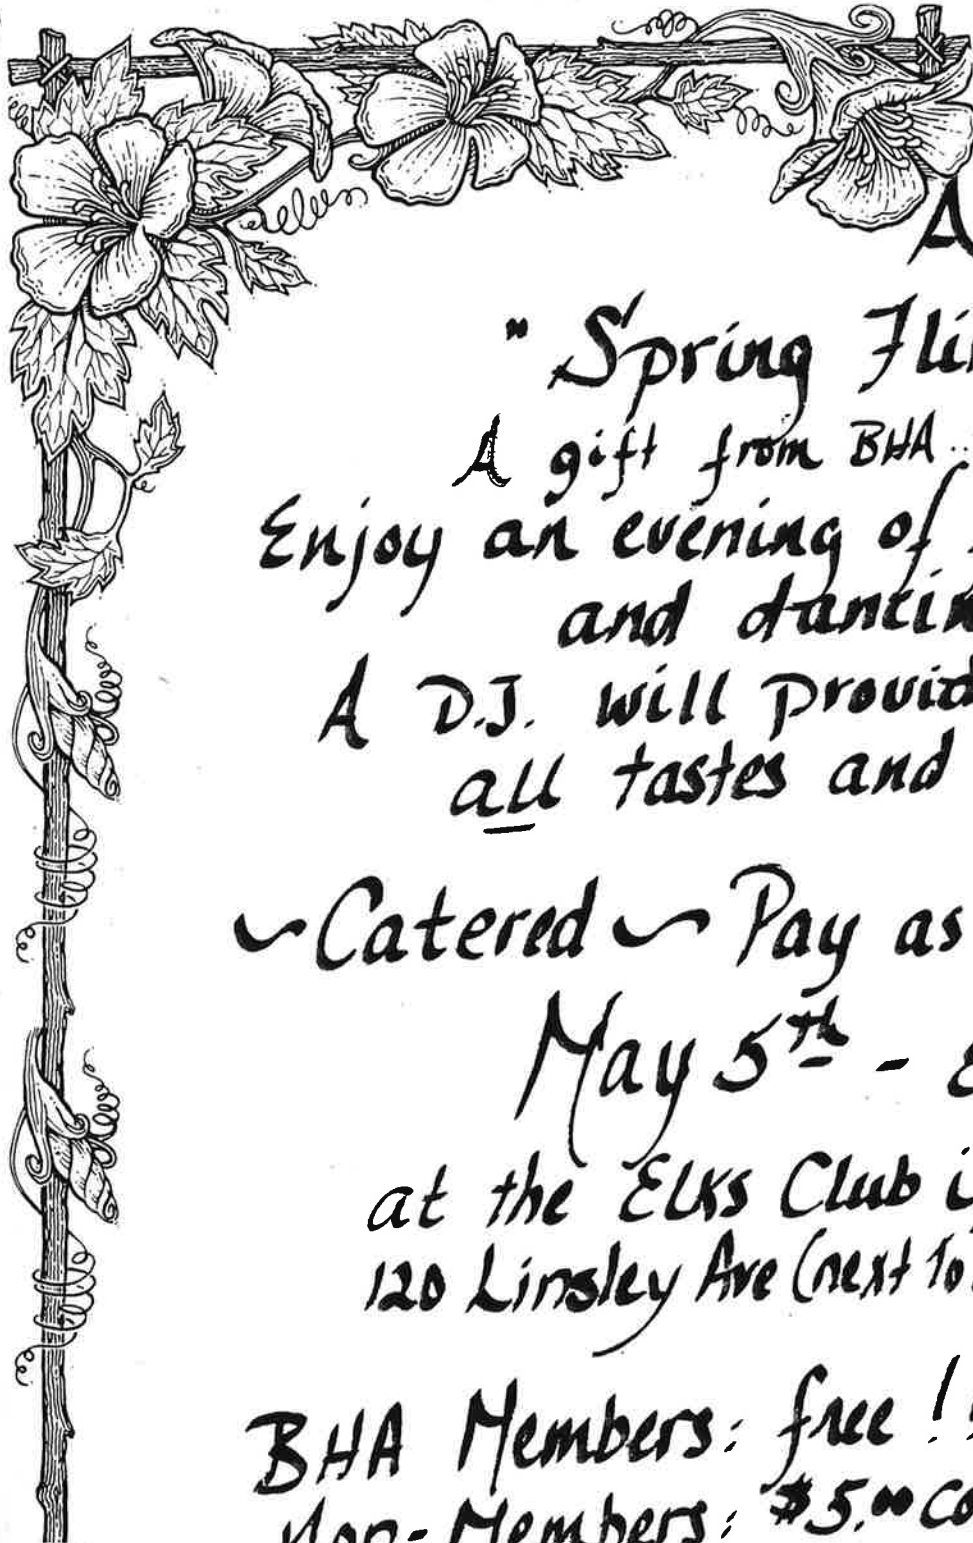 A
"Spring Flin
A gift from BHA..
Enjoy an evening of
and dancin
A D.J. will provid
all tastes and
~Catered~ Pay as
May 5th -
at the Elks Club i
120 Linsley Ave (next to
BHA Members: free!
Non-Members: $5.00 Co